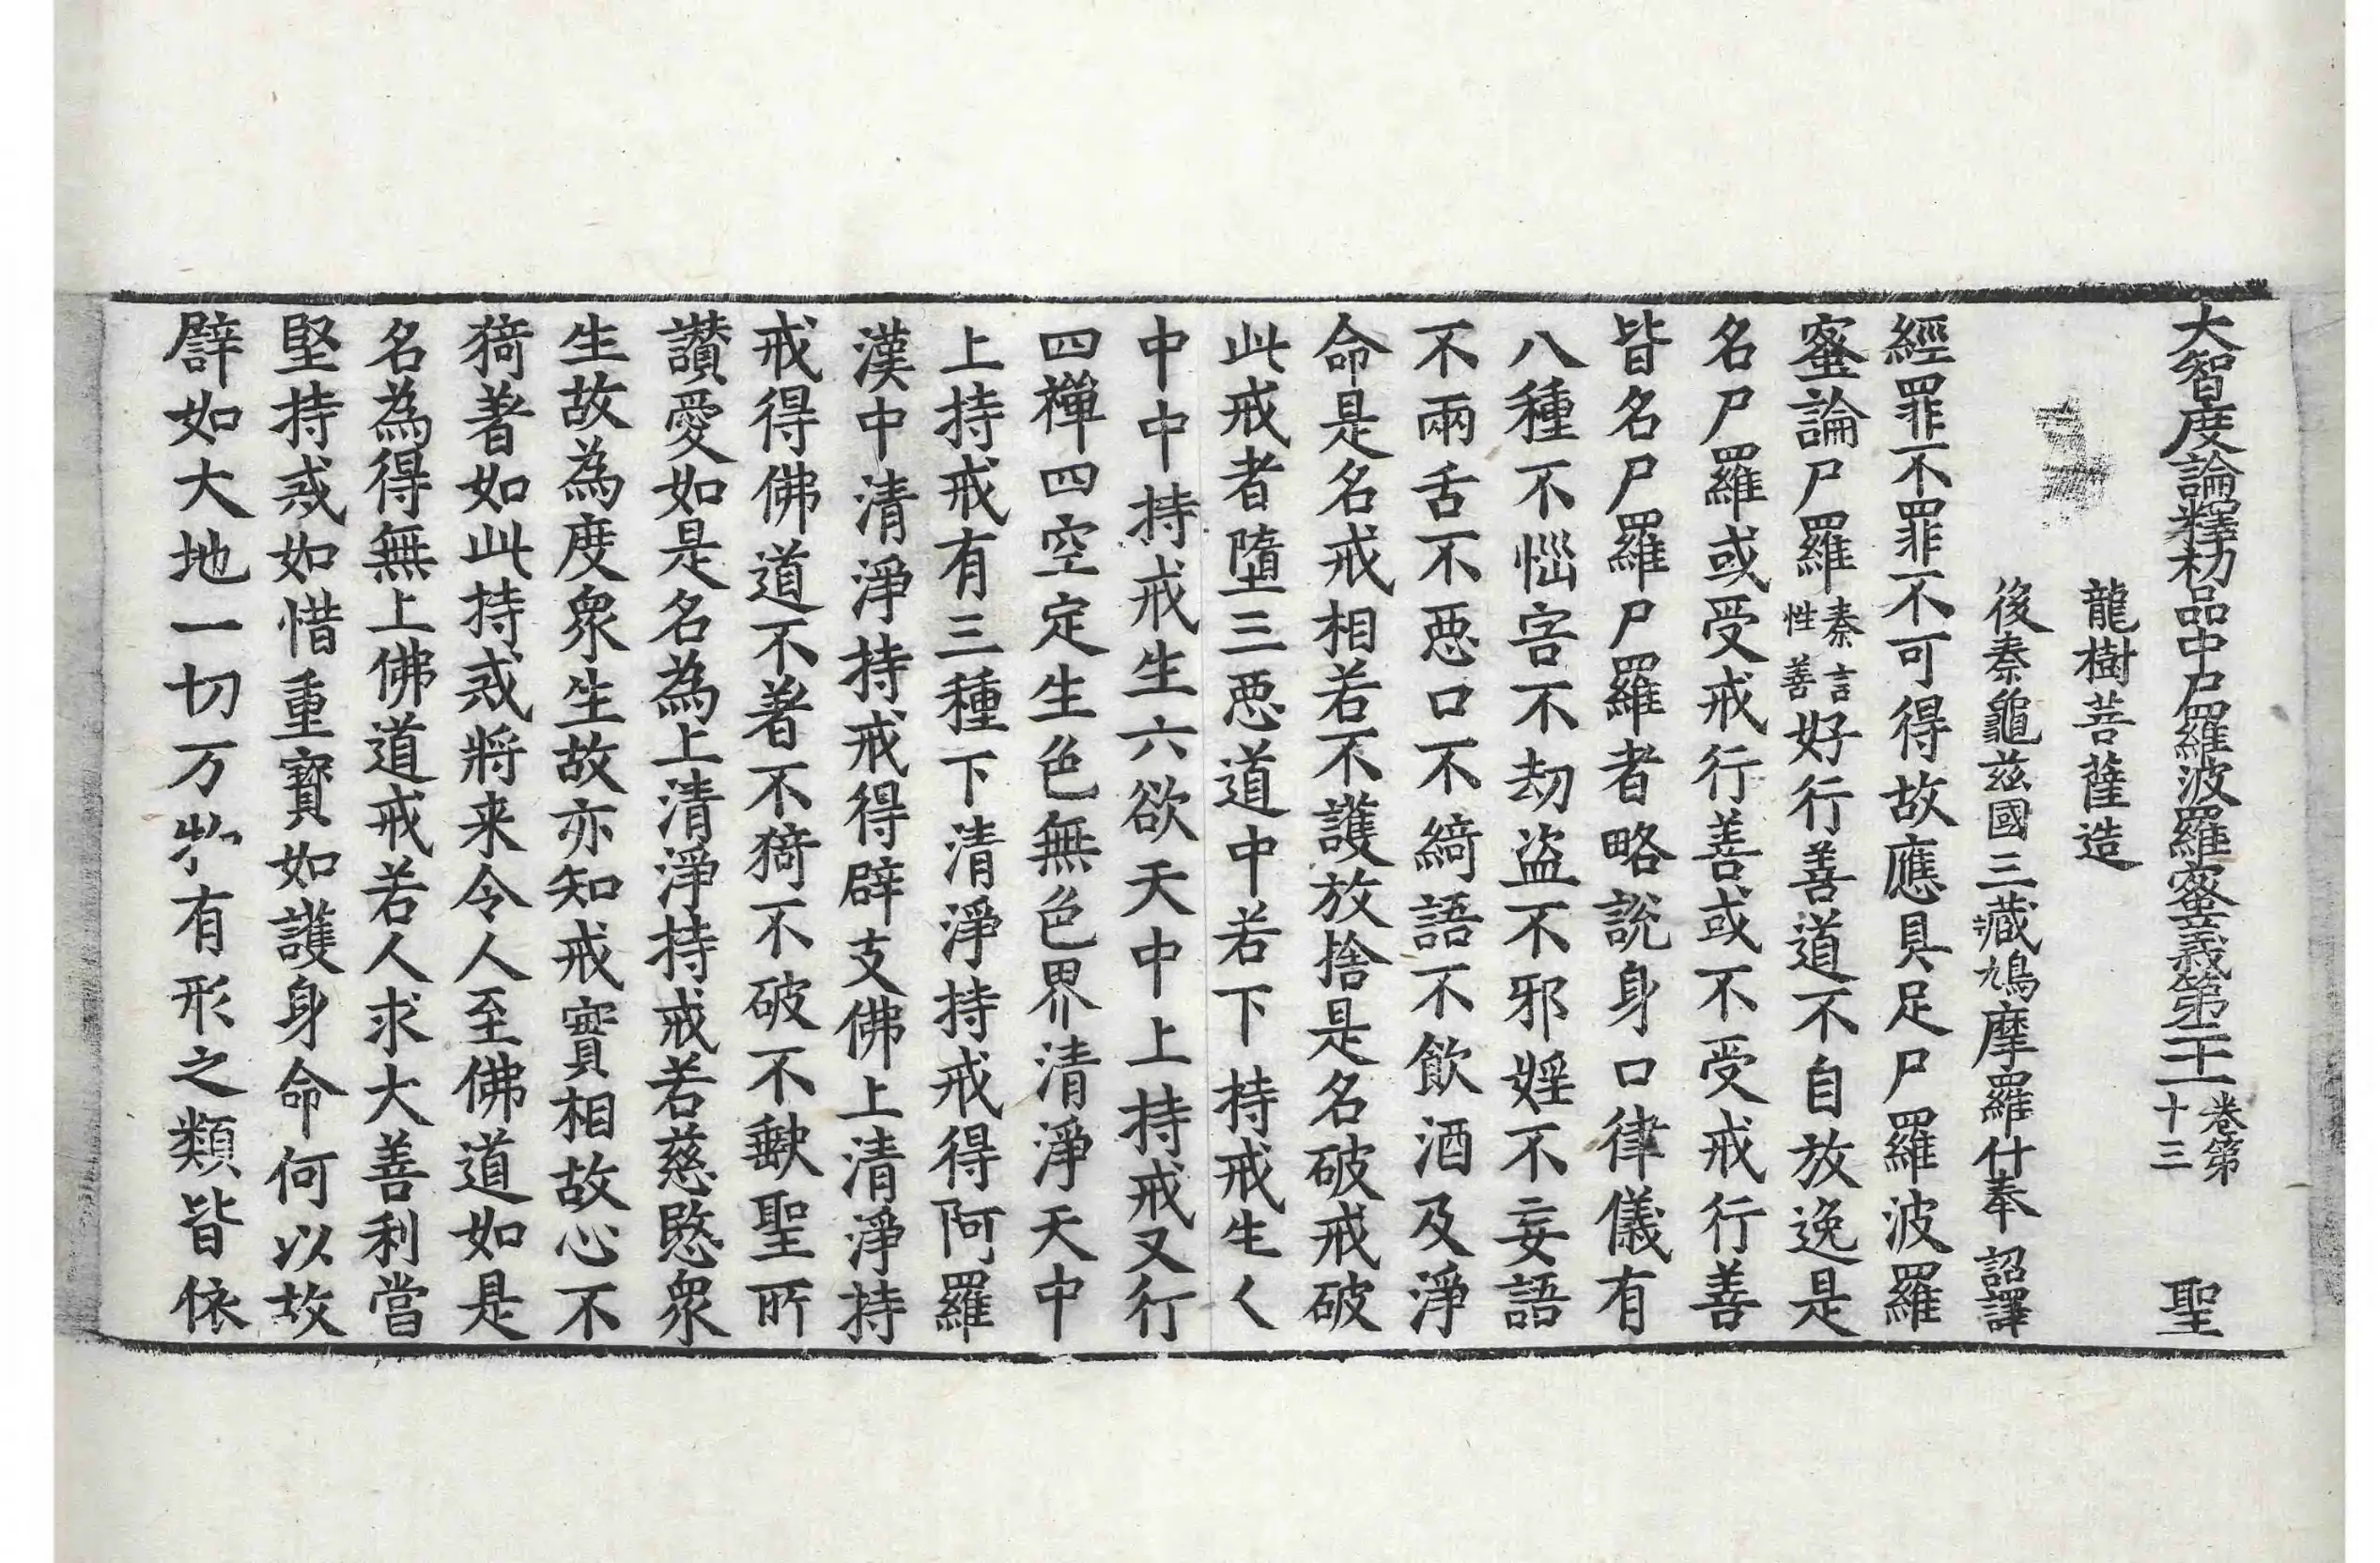 大智度論釋初品中尸羅波羅蜜義第二十一卷第十三 聖
龍樹菩薩造
後秦龜茲國三藏鳩摩羅什奉 詔譯
經罪不罪不可得故應具足尸羅波羅
蜜論尸羅秦言性善好行善道不自放逸是
名尸羅或受戒行善或不受戒行善
皆名尸羅尸羅者略說身口律儀有
八種不惱害不劫盜不邪婬不妄語
不兩舌不惡口不綺語不飲酒及淨
命是名戒相若不護放捨是名破戒破
此戒者墮三惡道中若下持戒生人
中中持戒生六欲天中上持戒又行
四禪四空定生色無色界清淨天中
上持戒有三種下清淨持戒得阿羅
漢中清淨持戒得辟支佛上清淨持
戒得佛道不著不猗不破不缺聖所
讚愛如是名為上清淨持戒若慈愍衆
生故為度衆生故亦知戒實相故心不
猗著如此持戒將来令人至佛道如是
名為得無上佛道戒若人求大善利當
堅持戒如惜重寶如護身命何以故
譬如大地一切万物有形之類皆依